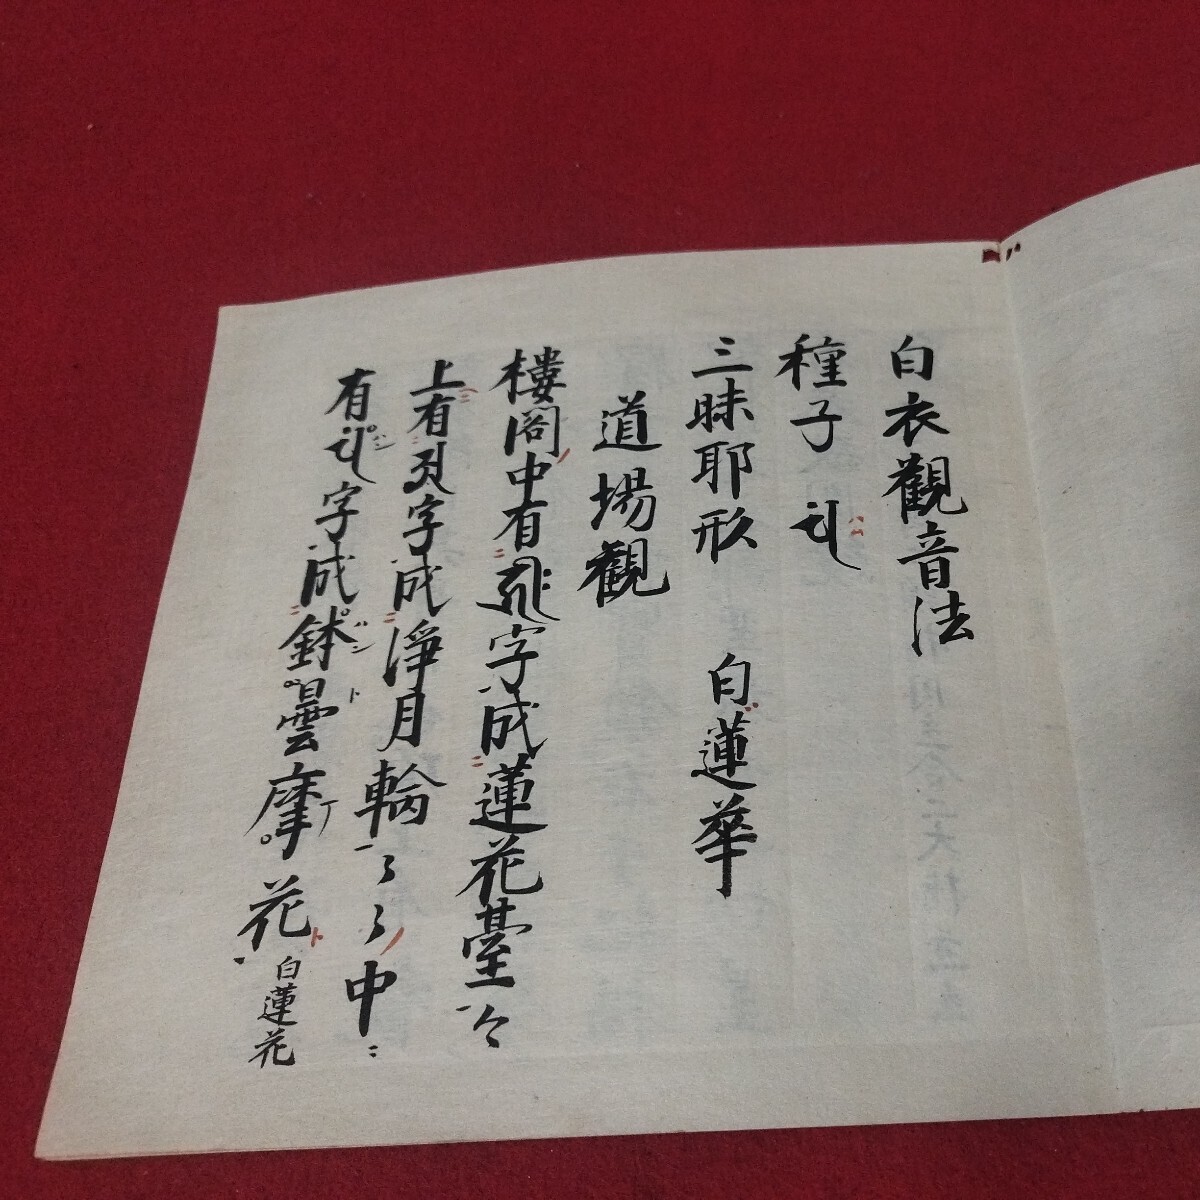 白衣觀音法
種子 𑖢𑖽 ハム
三昧耶形 白蓮華
道場觀
樓閣中有𑖮𑖿𑖨𑖱𑖾字成蓮花臺々
上有𑖀字成淨月輪々々中
有𑖢𑖽字成鉢曇摩花白蓮花